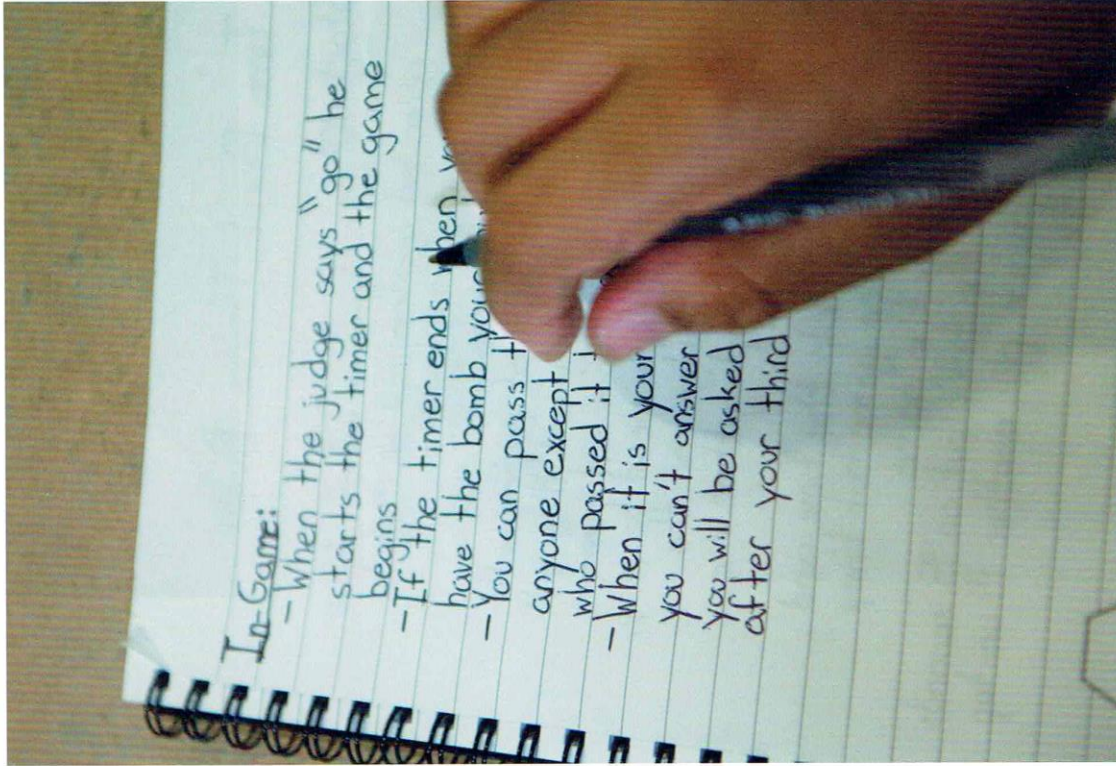 In-Game:
- When the judge says "go" he
starts the timer and the game
begins
- If the timer ends when
have the bomb
- You can pass
anyone except
who passed it
- When it is your
you can't answer
you will be asked
after your third